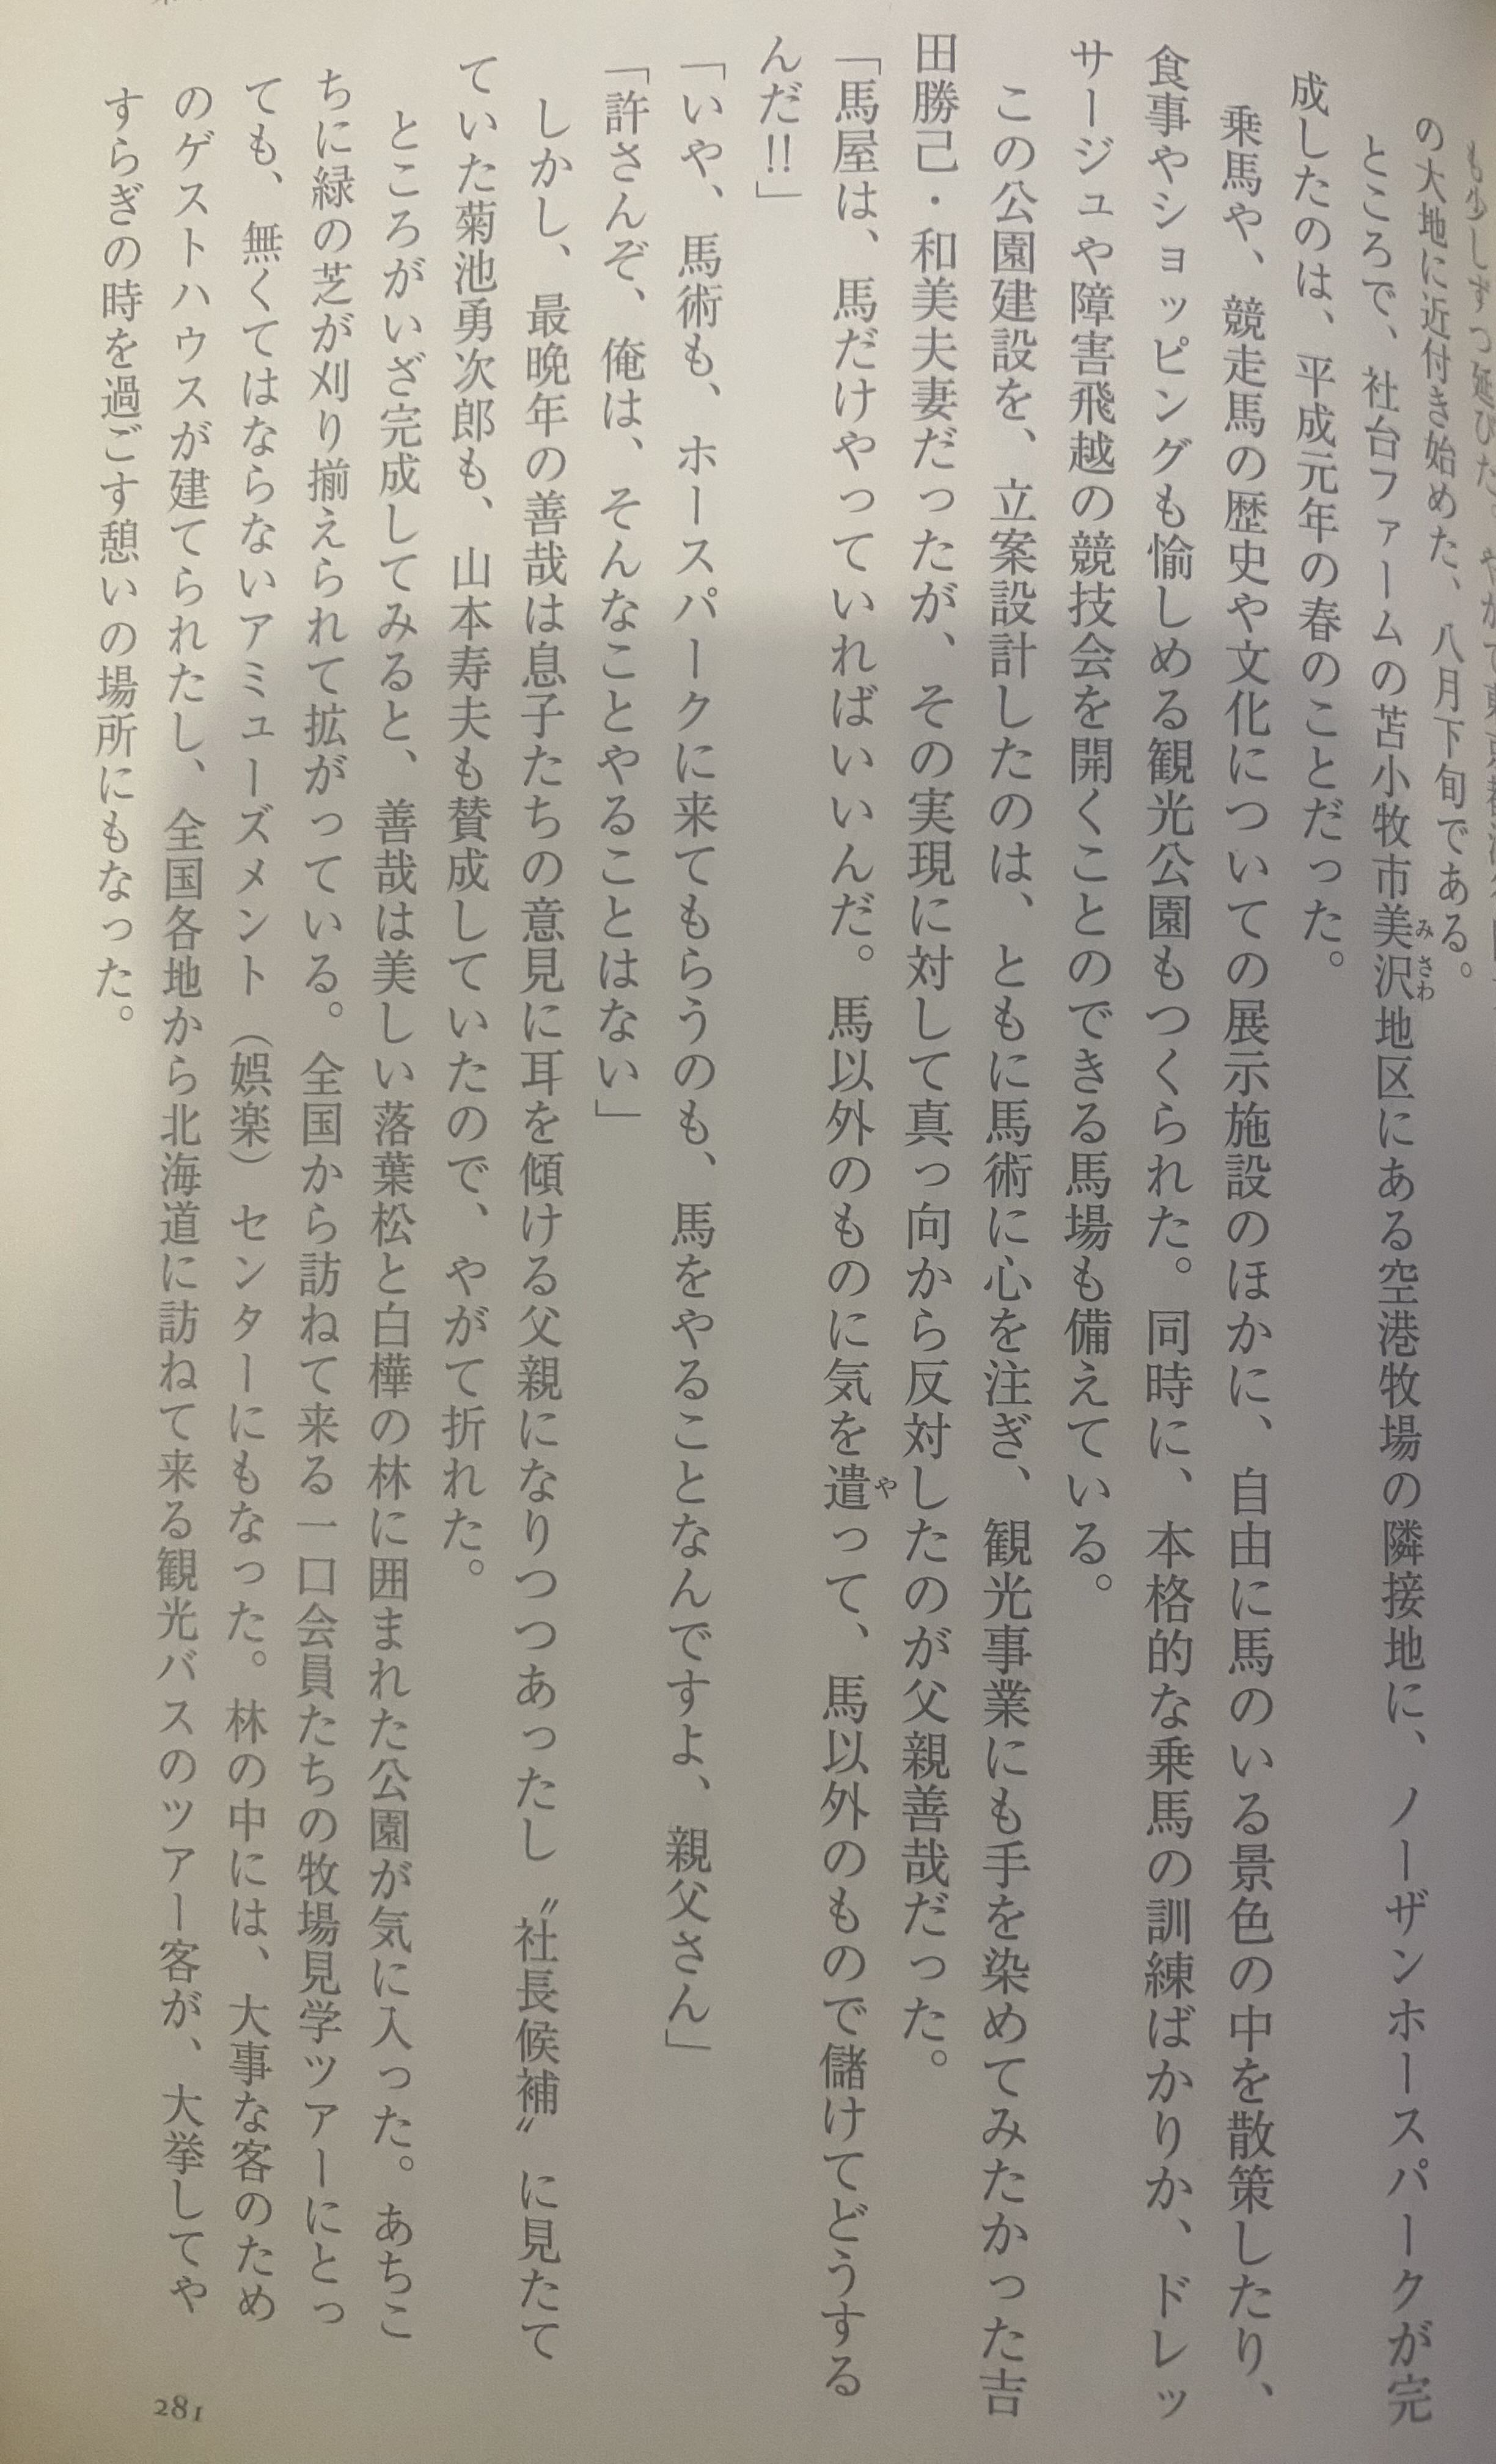 も少しずつ延びた。やがて東京都
の大地に近付き始めた、八月下旬である。
ところで、社台ファームの苫小牧市美沢地区にある空港牧場の隣接地に、ノーザンホースパークが完
成したのは、平成元年の春のことだった。
乗馬や、競走馬の歴史や文化についての展示施設のほかに、自由に馬のいる景色の中を散策したり、
食事やショッピングも愉しめる観光公園もつくられた。同時に、本格的な乗馬の訓練ばかりか、ドレッ
サージュや障害飛越の競技会を開くことのできる馬場も備えている。
この公園建設を、立案設計したのは、ともに馬術に心を注ぎ、観光事業にも手を染めてみたかった吉
田勝己・和美夫妻だったが、その実現に対して真っ向から反対したのが父親善哉だった。
「馬屋は、馬だけやっていればいいんだ。馬以外のものに気を遣って、馬以外のもので儲けてどうする
んだ!!」
「いや、馬術も、ホースパークに来てもらうのも、馬をやることなんですよ、親父さん」
「許さんぞ、俺は、そんなことやることはない」
しかし、最晩年の善哉は息子たちの意見に耳を傾ける父親になりつつあったし〝社長候補〟に見たて
ていた菊池勇次郎も、山本寿夫も賛成していたので、やがて折れた。
ところがいざ完成してみると、善哉は美しい落葉松と白樺の林に囲まれた公園が気に入った。あちこ
ちに緑の芝が刈り揃えられて拡がっている。全国から訪ねて来る一口会員たちの牧場見学ツアーにとっ
ても、無くてはならないアミューズメント（娯楽）センターにもなった。林の中には、大事な客のため
のゲストハウスが建てられたし、全国各地から北海道に訪ねて来る観光バスのツアー客が、大挙してや
すらぎの時を過ごす憩いの場所にもなった。
281